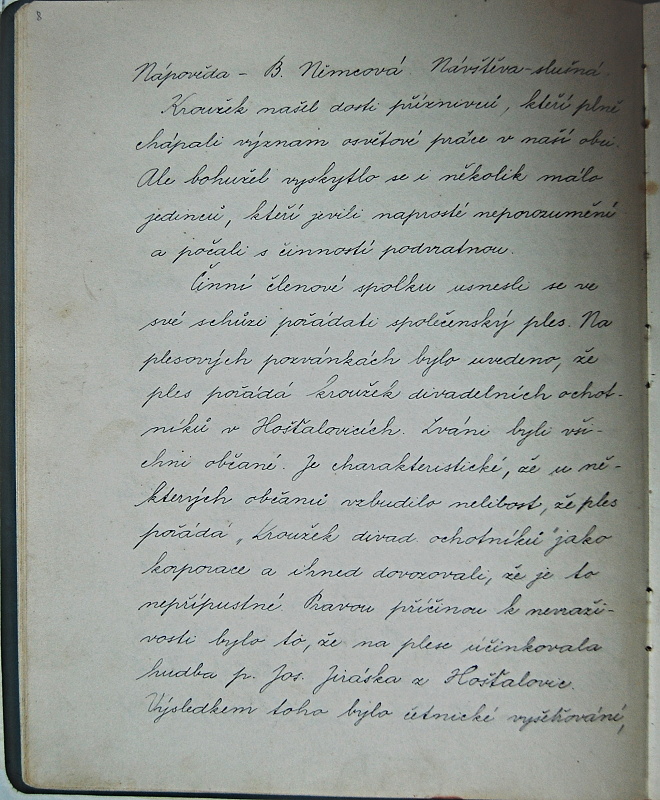 8
Nápověda – B. Němcová. Návštěva-slušná.
Kroužek našel dosti příznivců, kteří plně
chápali význam osvětové práce v naší obci.
Ale bohužel vyskytlo se i několik málo
jedinců, kteří jevili naprosté neporozumění
a počali s činností podvratnou.
Činní členové spolku usnesli se ve
své schůzi pořádati společenský ples. Na
plesových pozvánkách bylo uvedeno, že
ples pořádá kroužek divadelních ochot-
níků v Hošťalovicích. Zváni byli vši-
chni občané. Je charakteristické, že u ně-
kterých občanů vzbudilo nelibost, že ples
pořádá „Kroužek divad. ochotníků" jako
korporace a ihned dovozovali, že je to
nepřípustné. Pravou příčinou k nevraži-
vosti bylo to, že na plese účinkovala
hudba p. Jos. Jiráska z Hošťalovic.
Výsledkem toho bylo četnické vyšetřování,